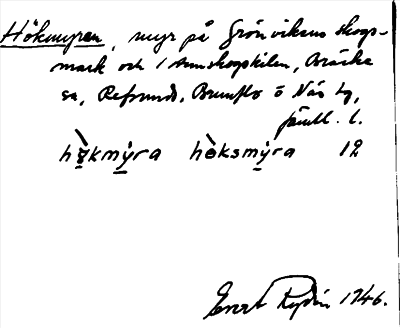 Hökmyren, myr på Grönvikens skogs-
mark och i Sunskogskilen, Bräcke
sn, Refsunds, Brunflo o Näs tg,
Jämtl. l.
hòkmỳra hòksmyra 12
Evert Rydén 1946.